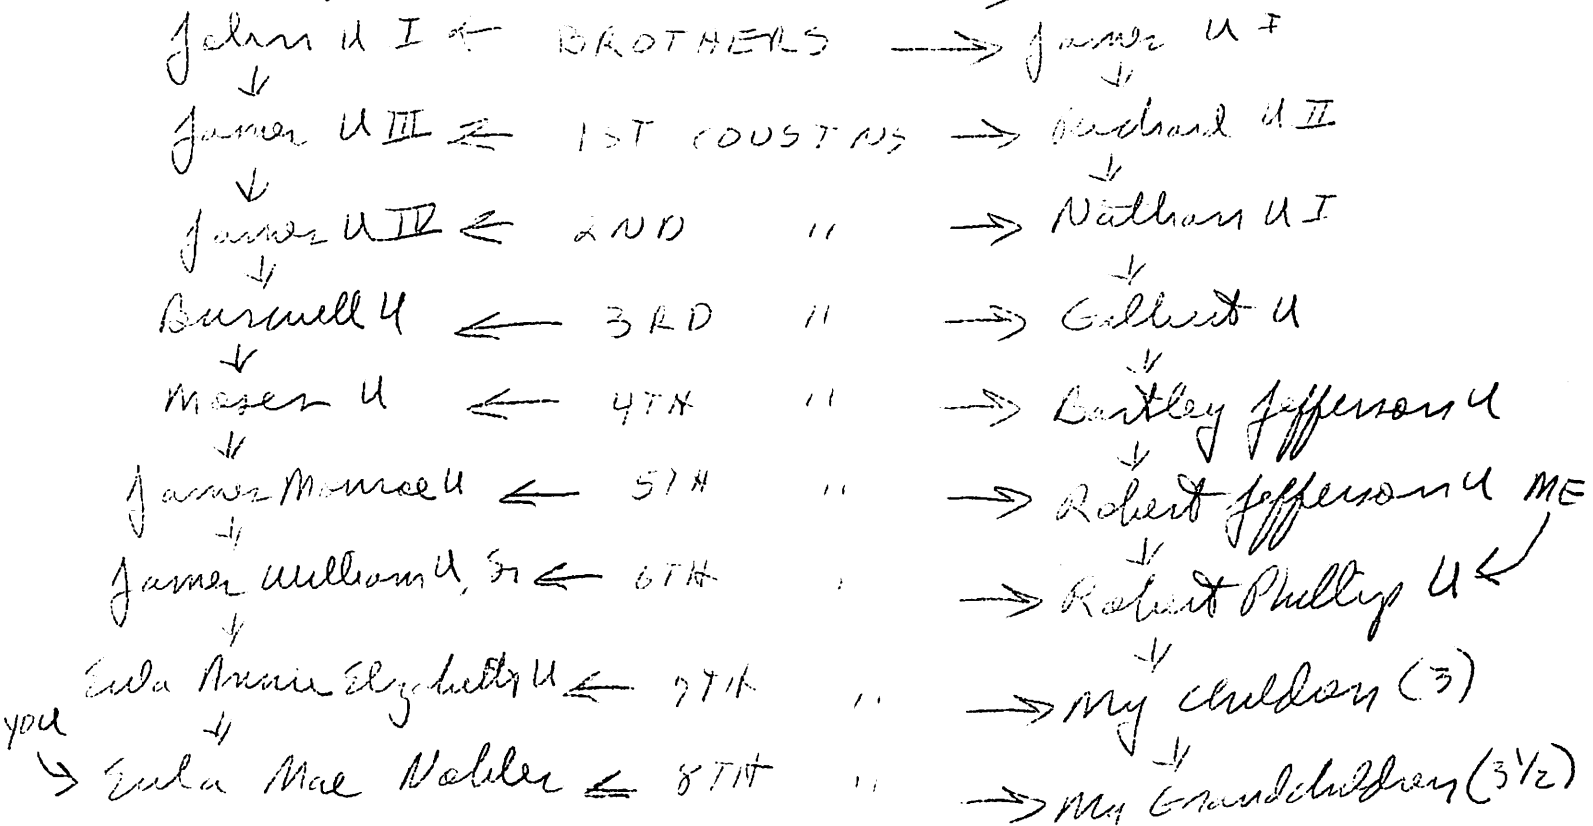 John U I ← BROTHERS → James U I
James U III ← 1ST COUSINS → Richard U II
James U IV ← 2ND " → Nathan U I
Burwell U ← 3RD " → Gilbert U
Moses U ← 4TH " → Bartley Jefferson U
James Monroe U ← 5TH " → Robert Jefferson U ME
James William U, Sr ← 6TH " → Robert Phillip U
Eula Annie Elizabeth U ← 7TH " → My children (3)
YOU
Eula Mae Nobler ← 8TH " → My Grandchildren (3½)